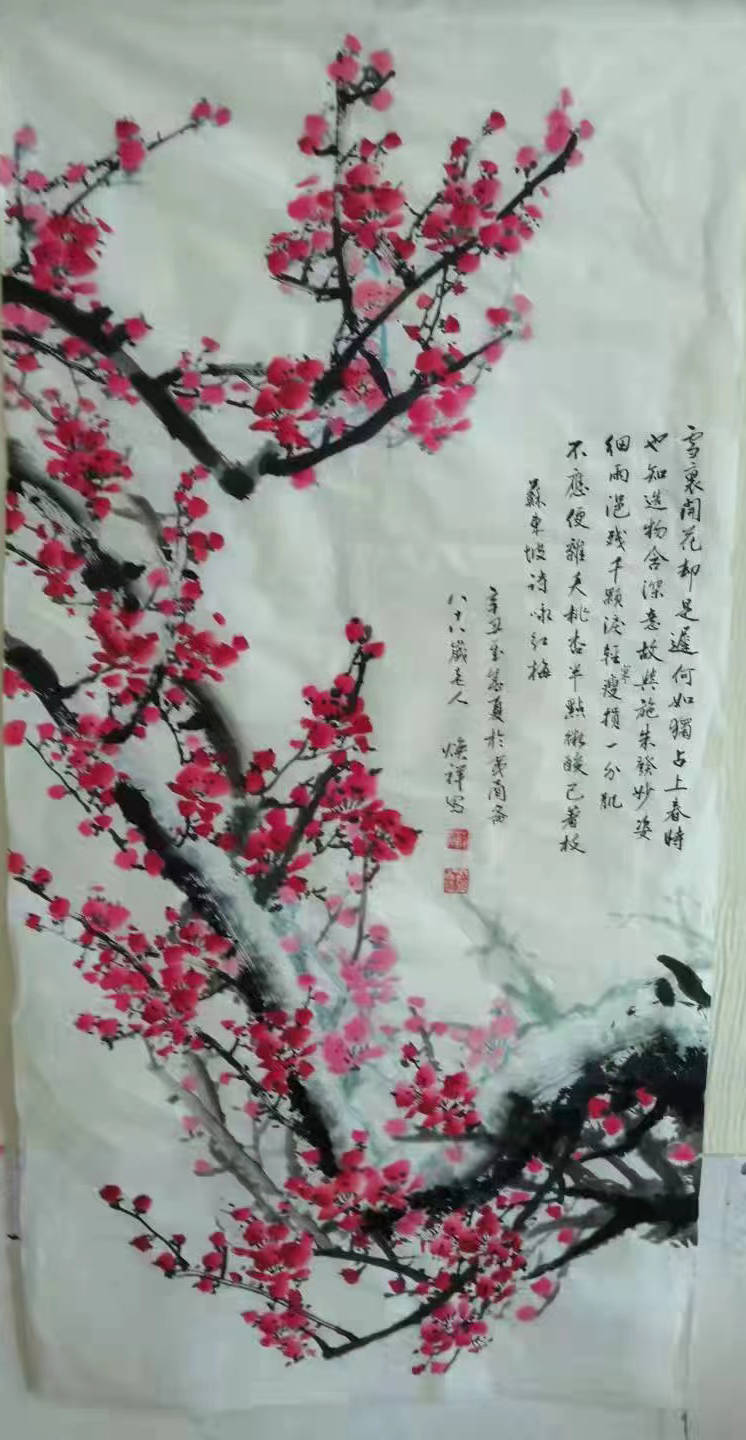 雪裏開花却是遲何如獨占上春時
也知造物含深意故與施朱發妙姿
细雨浥残千顆淚輕寒瘦損一分肌
不應便雜夭桃杏半點微酸已着枝
蘇東坡诗咏红梅
辛丑 夏於 斋
八十八歲老人 焕祥写